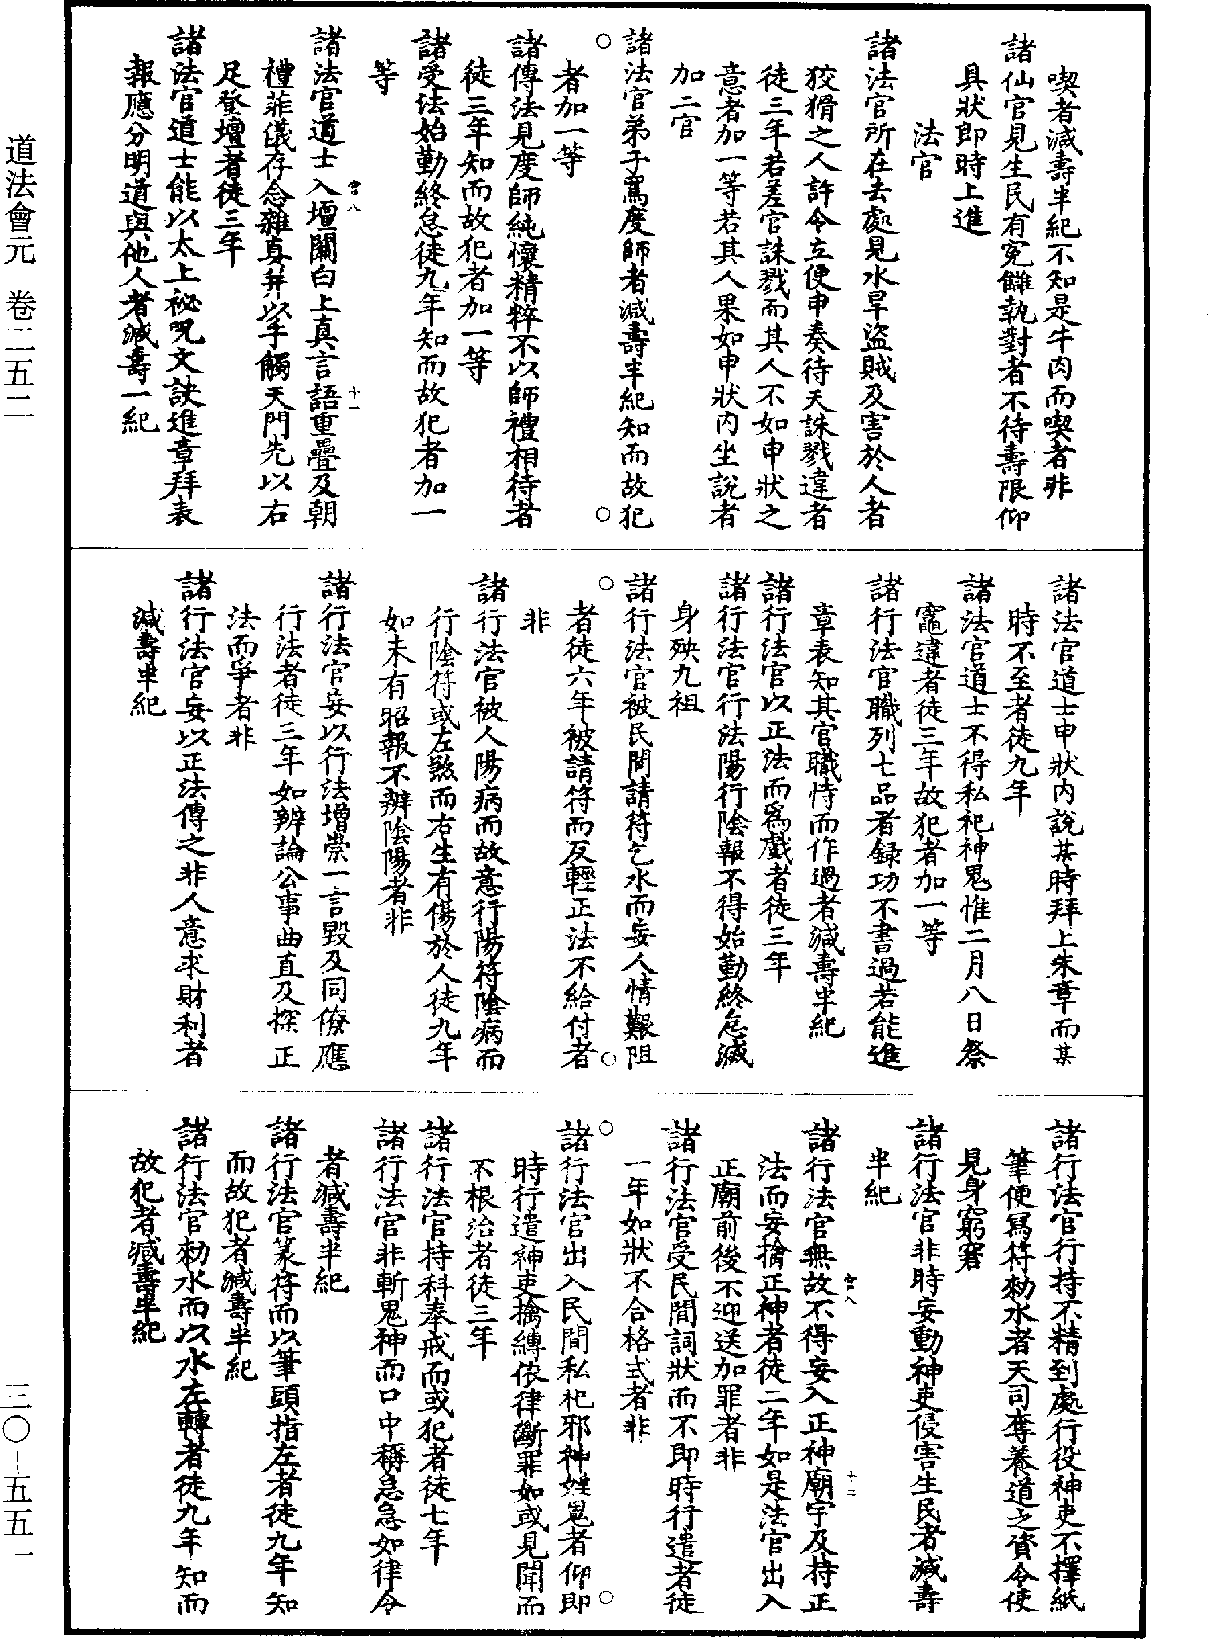 喫者減壽半紀不知是牛肉而喫者非
諸仙官見生民有冤讎執對者不待壽限仰
具狀即時上進
法官
諸法官所在去處見水旱盜賊及害於人者
狡猾之人許令立便申奏待天誅戮違者
徒三年若差官誅戮而其人不如申狀之
意者加一等若其人果如申狀內坐說者
加二官
諸法官弟子罵度師者減壽半紀知而故犯
者加一等
諸傳法見度師純懷精粹不以師禮相待者
徒三年知而故犯者加一等
諸受法始勤終怠徒九年知而故犯者加一
等
諸法官道士入壇關白上真言語重疊及朝
禮菲儀存念雜真并以手觸天門先以右
足登壇者徒三年
諸法官道士能以太上祕呪文訣進章拜表
報應分明道與他人者減壽一紀
諸法官道士申狀內說某時拜上朱章而某
時不至者徒九年
諸法官道士不得私祀神鬼惟二月八日祭
竈違者徒三年故犯者加一等
諸行法官職列七品者録功不書過若能進
章表知其官職恃而作過者減壽半紀
諸行法官以正法而爲戲者徒三年
諸行法官行法陽行陰報不得始勤終怠滅
身殃九祖
諸行法官被民間請符乞水而妄人情艱阻
者徒六年被請符而反輕正法不給付者
非
諸行法官被人陽病而故意行陽符陰病而
行陰符或左煞而右生有傷於人徒九年
如未有昭報不辨陰陽者非
諸行法官妄以行法增崇一言毀及同僚應
行法者徒三年如辨論公事曲直及探正
法而爭者非
諸行法官妄以正法傳之非人意求財利者
減壽半紀
諸行法官行持不精到處行役神吏不擇紙
筆便寫符勑水者天司奪養道之資令使
見身窮窘
諸行法官非時妄動神吏侵害生民者減壽
半紀
諸行法官無故不得妄入正神廟宇及持正
法而妄擒正神者徒二年如是法官出入
正廟前後不迎送加罪者非
諸行法官受民間詞狀而不即時行遣者徒
一年如狀不合格式者非
諸行法官出入民間私祀邪神姓鬼者仰即
時行遣神吏擒縛依律斷罪如或見聞而
不根治者徒三年
諸行法官持科奉戒而或犯者徒七年
諸行法官非斬鬼神而口中稱急急如律令
者減壽半紀
諸行法官篆符而以筆頭指左者徒九年知
而故犯者減壽半紀
諸行法官勑水而以水左轉者徒九年知而
故犯者減壽半紀
道法會元 卷二五二
三〇–五五一